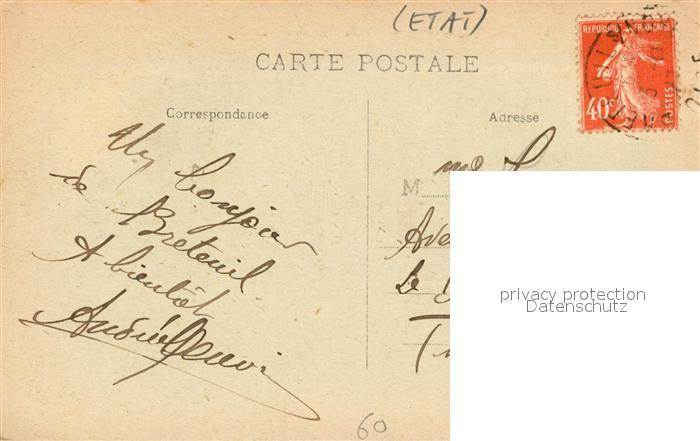 (ETAT)
CARTE POSTALE
REPUBLIQUE FRANÇAISE
40c
POSTES
Correspondance
Adresse
Un bonjour
de Breteuil
A bientôt
M
Ave
Le
privacy protection
Datenschutz
60